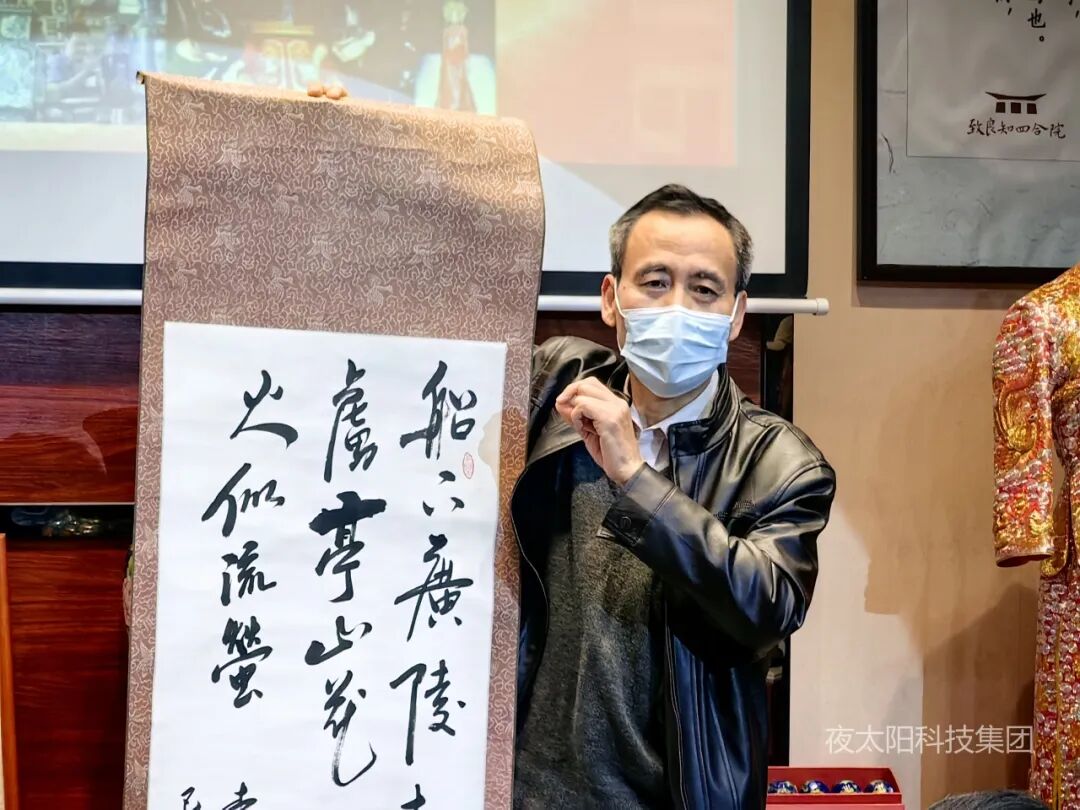 船下廣陵
虜亭山花
火似流螢
也。
致良知四合院
夜太阳科技集团